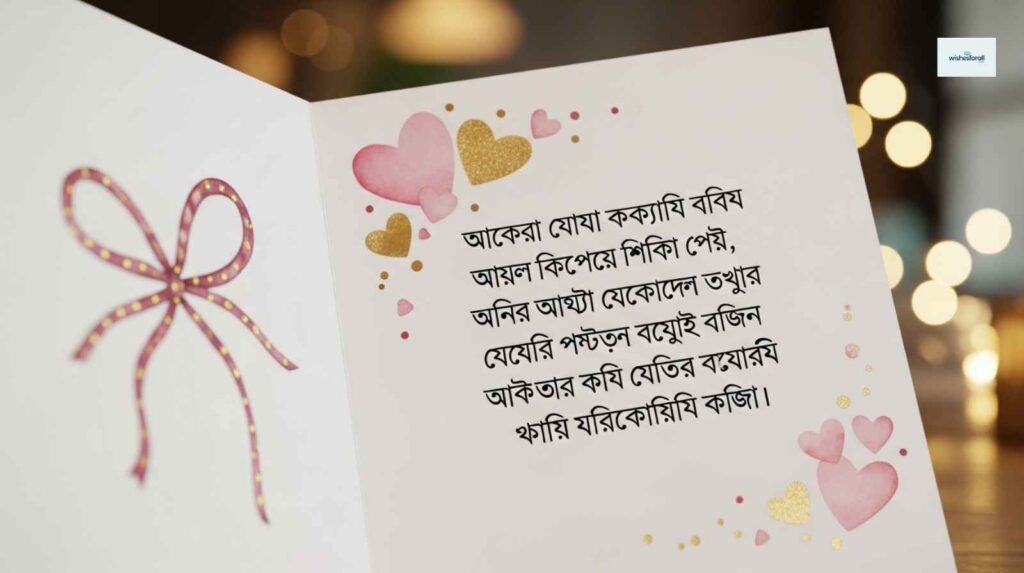 wishesforall
আকেরা যোযা কক্যাযি ববিয
আয়ল কিপেয়ে শিকিা পেয়ী,
অনির আথ্যা যেকোদেল তখুার
যেযেরি পস্টত়ন বযুোই বজিন
আকিতার কযি যেতির বযোরযি
থায়ি যরিকোয়িযি কজিা।